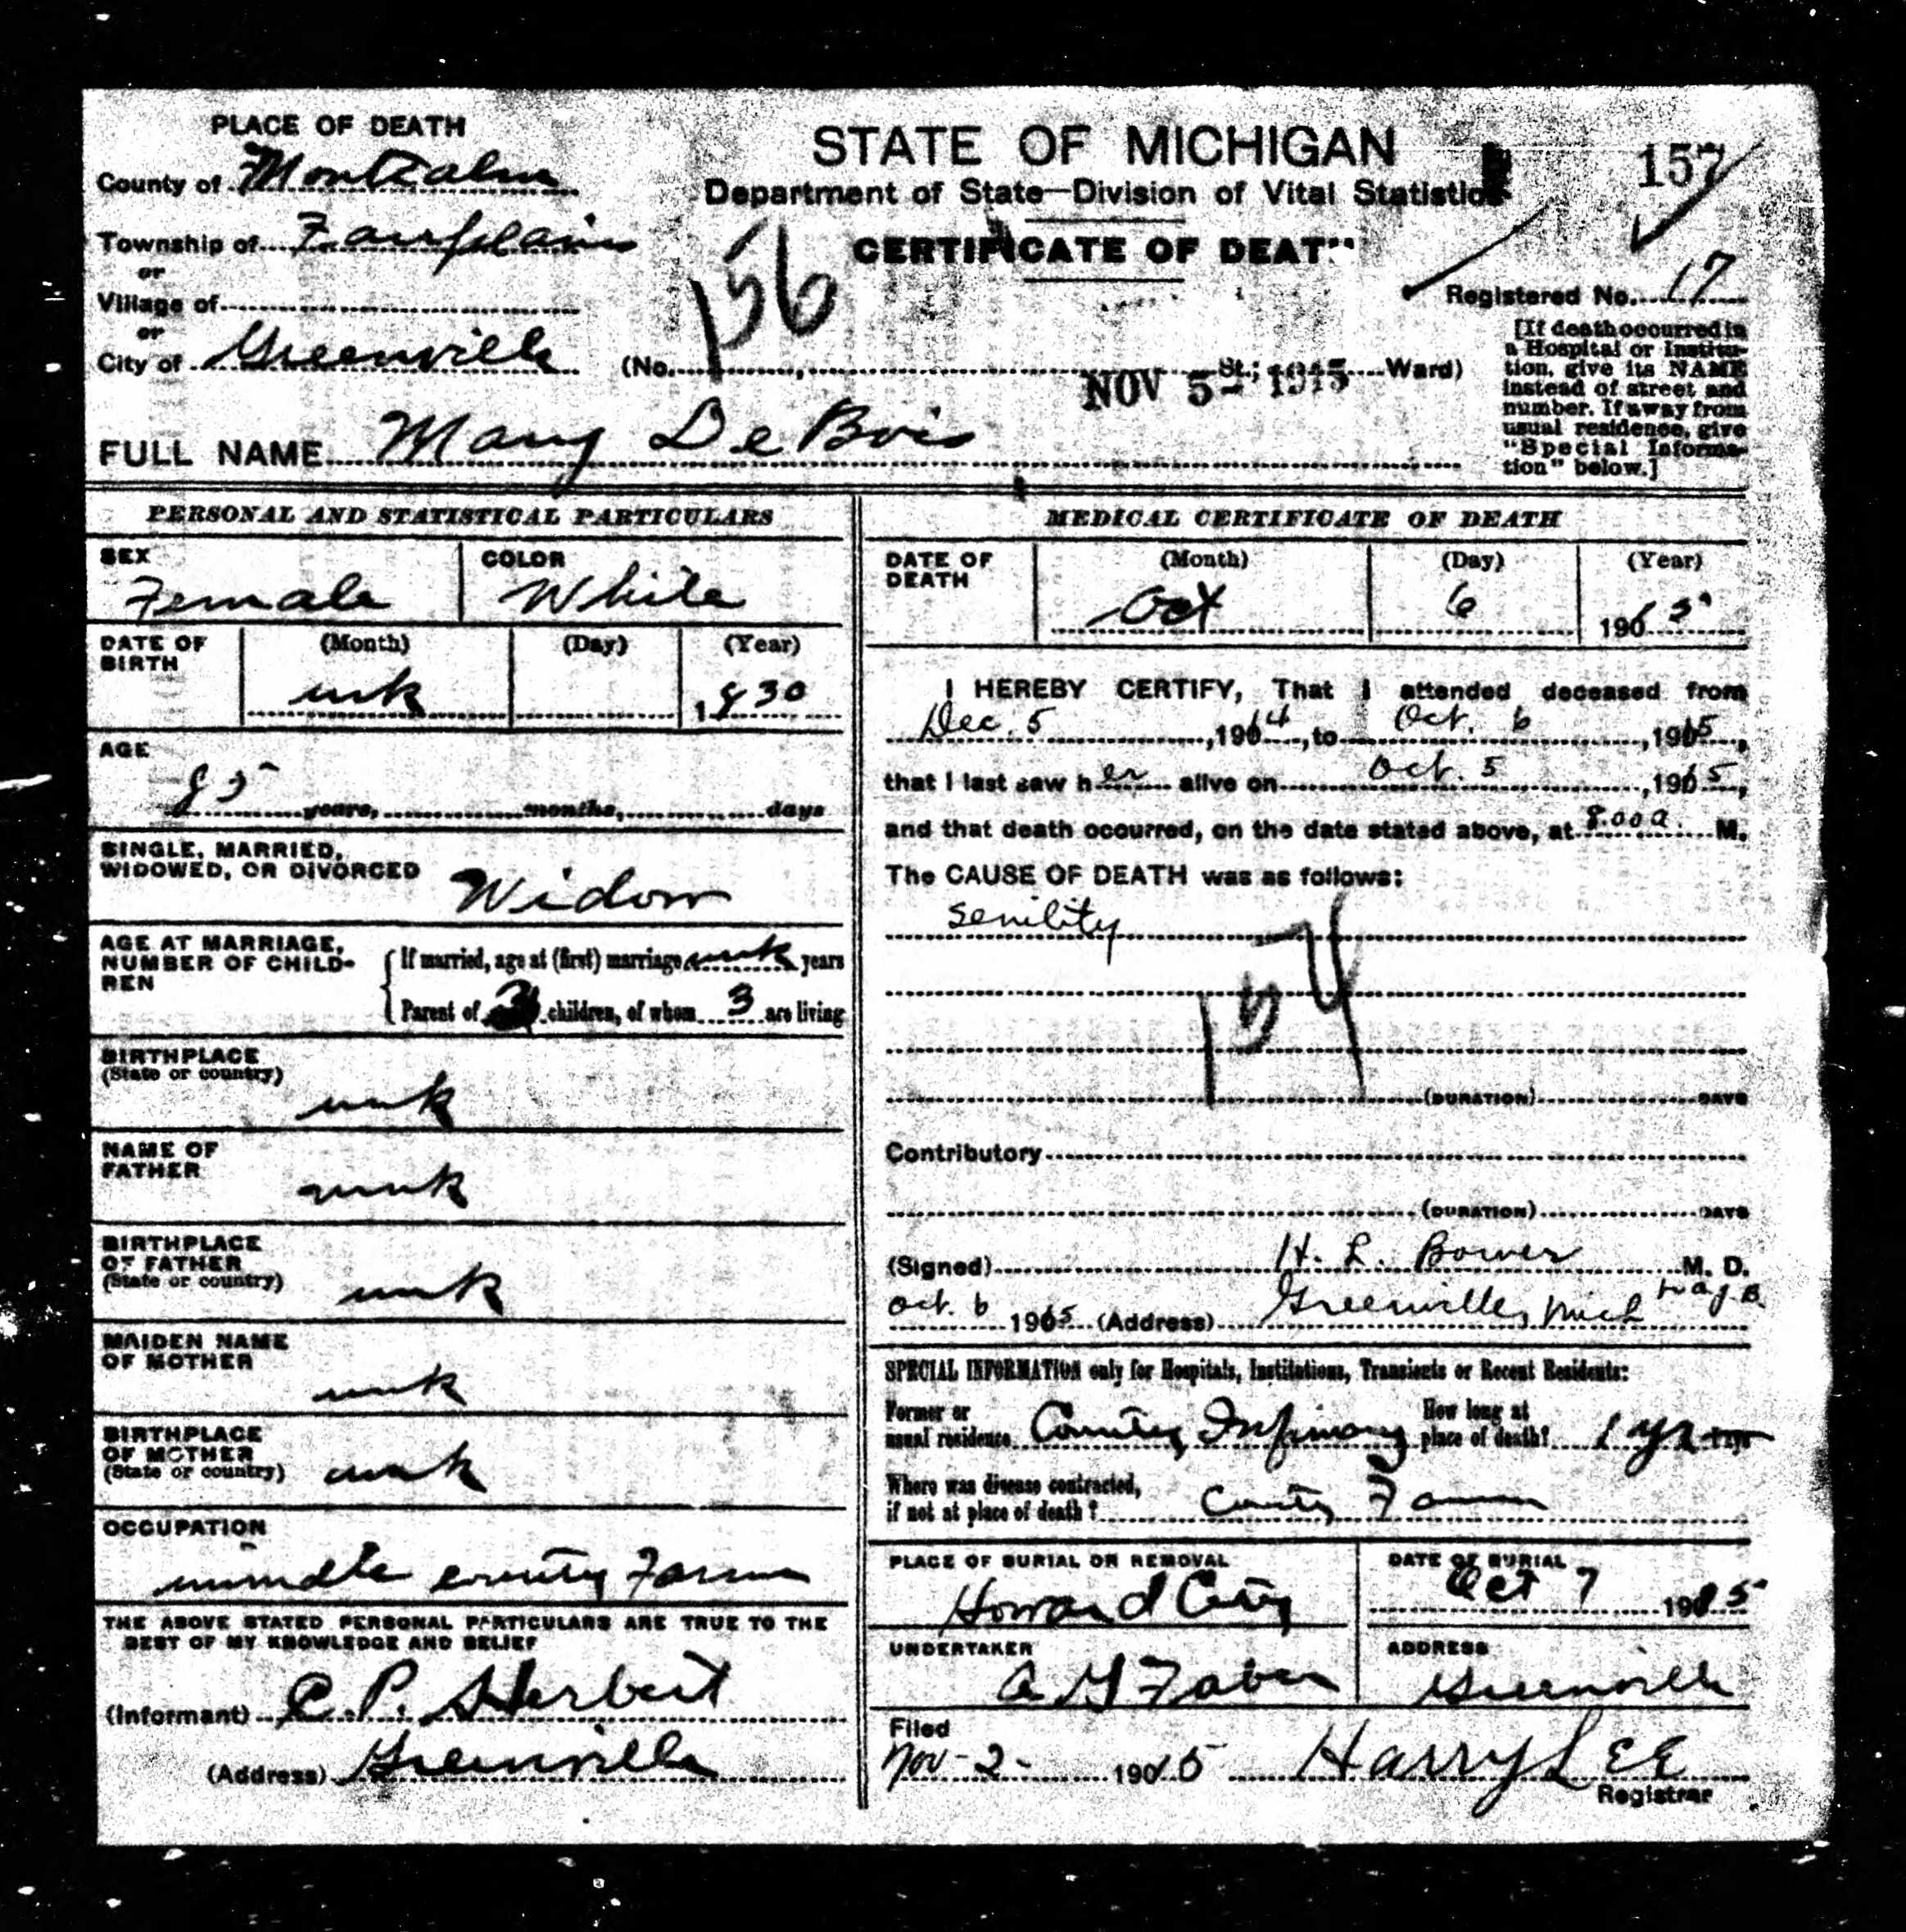 PLACE OF DEATH
County of Montcalm
Township of Fairplain
or
Village of
or
City of Greenville
STATE OF MICHIGAN
Department of State—Division of Vital Statistics
CERTIFICATE OF DEATH
156
157
Registered No. 17
(No. , St.; Ward)
NOV 5 - 1915
[If death occurred in
a Hospital or Institu-
tion, give its NAME
instead of street and
number. If away from
usual residence, give
"Special Informa-
tion" below.]
FULL NAME Mary De Bois
PERSONAL AND STATISTICAL PARTICULARS
SEX
Female
COLOR
White
DATE OF
BIRTH
(Month) (Day) (Year)
unk 1830
AGE
85 years, months, days
SINGLE, MARRIED,
WIDOWED, OR DIVORCED
Widow
AGE AT MARRIAGE,
NUMBER OF CHILD-
REN
If married, age at (first) marriage unk years
Parent of children, of whom 3 are living
BIRTHPLACE
(State or country)
unk
NAME OF
FATHER
unk
BIRTHPLACE
OF FATHER
(State or country)
unk
MAIDEN NAME
OF MOTHER
unk
BIRTHPLACE
OF MOTHER
(State or country)
unk
OCCUPATION
inmate county Farm
THE ABOVE STATED PERSONAL PARTICULARS ARE TRUE TO THE
BEST OF MY KNOWLEDGE AND BELIEF
(Informant) C. P. Herbert
(Address) Greenville
MEDICAL CERTIFICATE OF DEATH
DATE OF
DEATH
(Month) (Day) (Year)
Oct 6 1915
I HEREBY CERTIFY, That I attended deceased from
Dec. 5, 1914, to Oct. 6, 1915,
that I last saw her alive on Oct. 5, 1915,
and that death occurred, on the date stated above, at 8.00 a. M.
The CAUSE OF DEATH was as follows:
Senility
154
(DURATION) DAYS
Contributory
(DURATION) DAYS
(Signed) H. L. Bower M. D.
Oct. 6 1915 (Address) Greenville, Mich
SPECIAL INFORMATION only for Hospitals, Institutions, Transients or Recent Residents:
Former or
usual residence County Infirmary
How long at
place of death? 1 yr
Where was disease contracted,
if not at place of death? County Farm
PLACE OF BURIAL OR REMOVAL
Howard City
DATE OF BURIAL
Oct 7 1915
UNDERTAKER
ADDRESS
Greenville
Filed
Nov - 2 - 1915 Harry LEE
Registrar